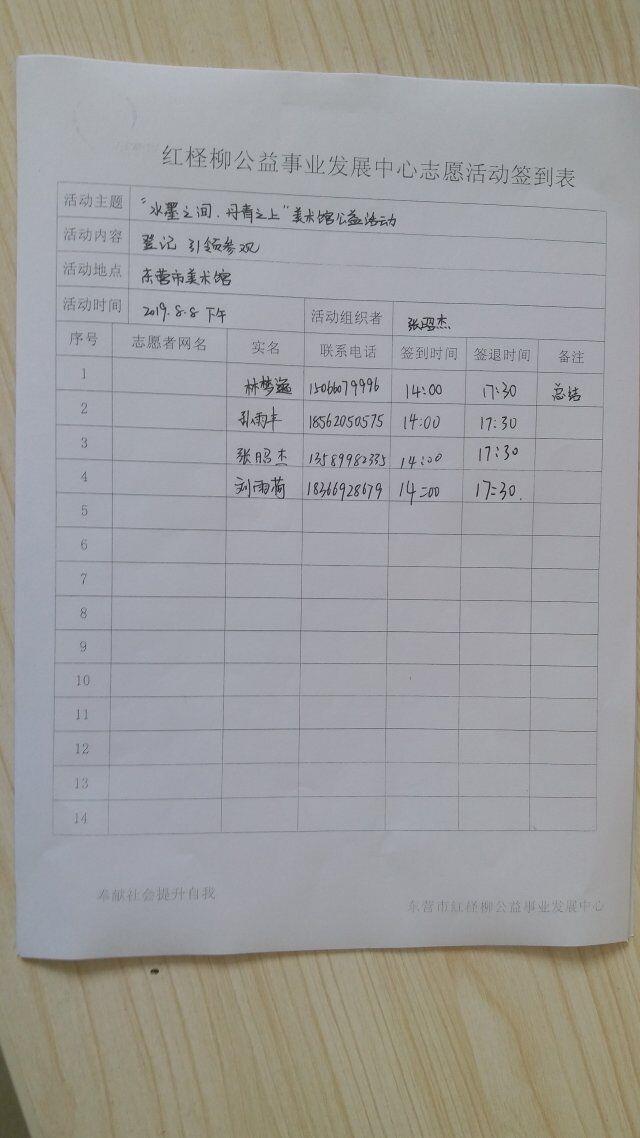 红柽柳公益事业发展中心志愿活动签到表
活动主题 "水墨之间,丹青之上"美术馆公益活动
活动内容 登记 引领参观
活动地点 东营市美术馆
活动时间 2019.8.8 下午 活动组织者 张昭杰
序号 志愿者网名 实名 联系电话 签到时间 签退时间 备注
1 林梦遥 15066079996 14:00 17:30 总结
2 孙雨丰 18562050575 14:00 17:30
3 张昭杰 13589982335 14:00 17:30
4 刘雨荷 18366928679 14:00 17:30.
5
6
7
8
9
10
11
12
13
14
奉献社会提升自我 东营市红柽柳公益事业发展中心